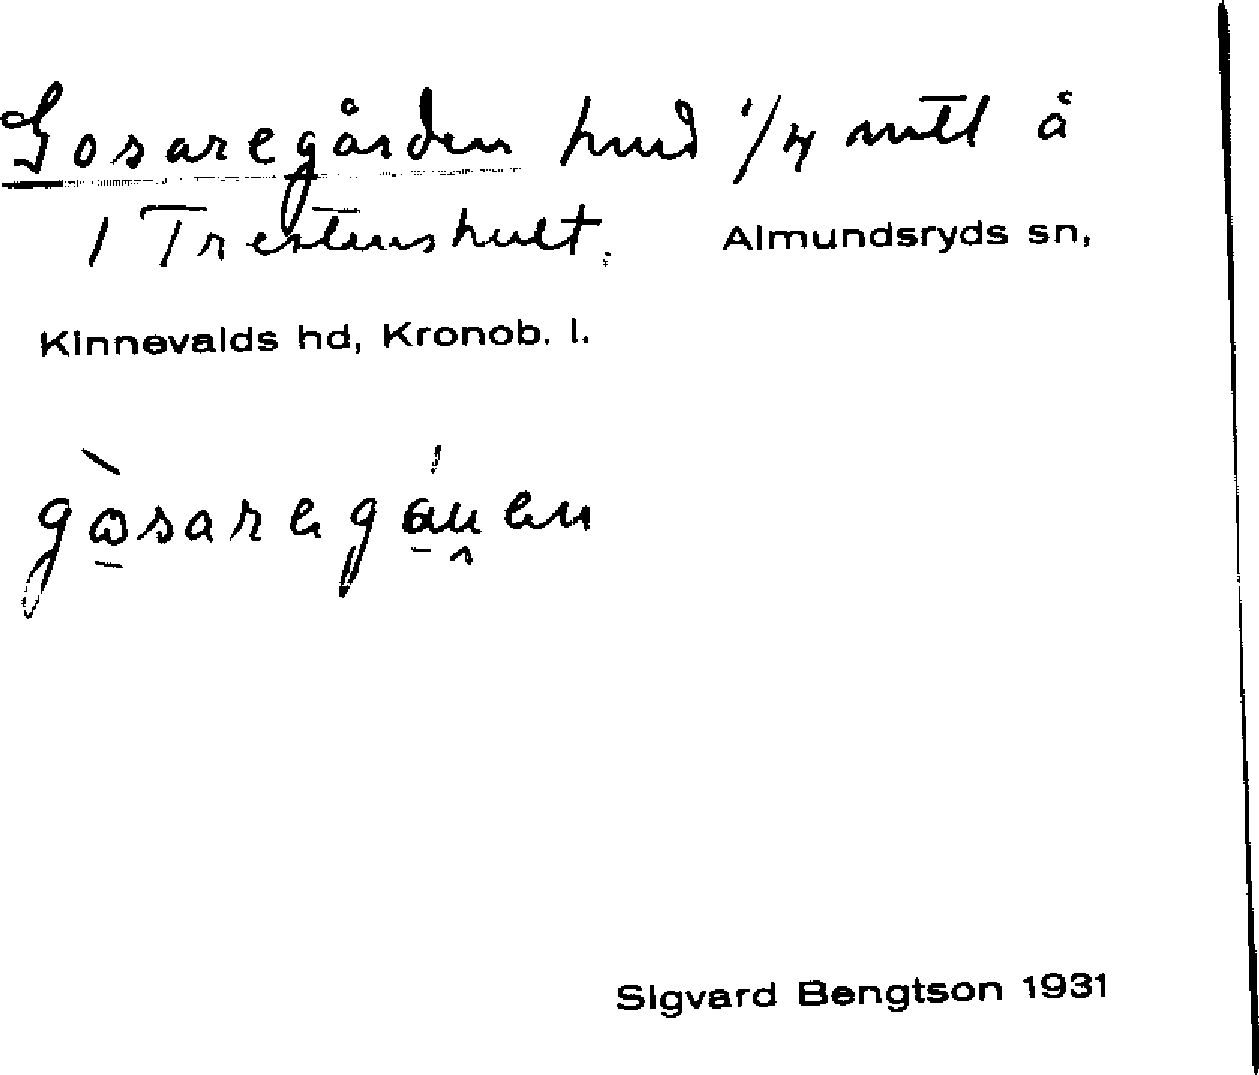 Gosaregården hmd 1/4 mtl å
1 Trestenshult. Almundsryds sn,
Kinnevalds hd, Kronob. l.
gòsaregáuen
Sigvard Bengtson 1931